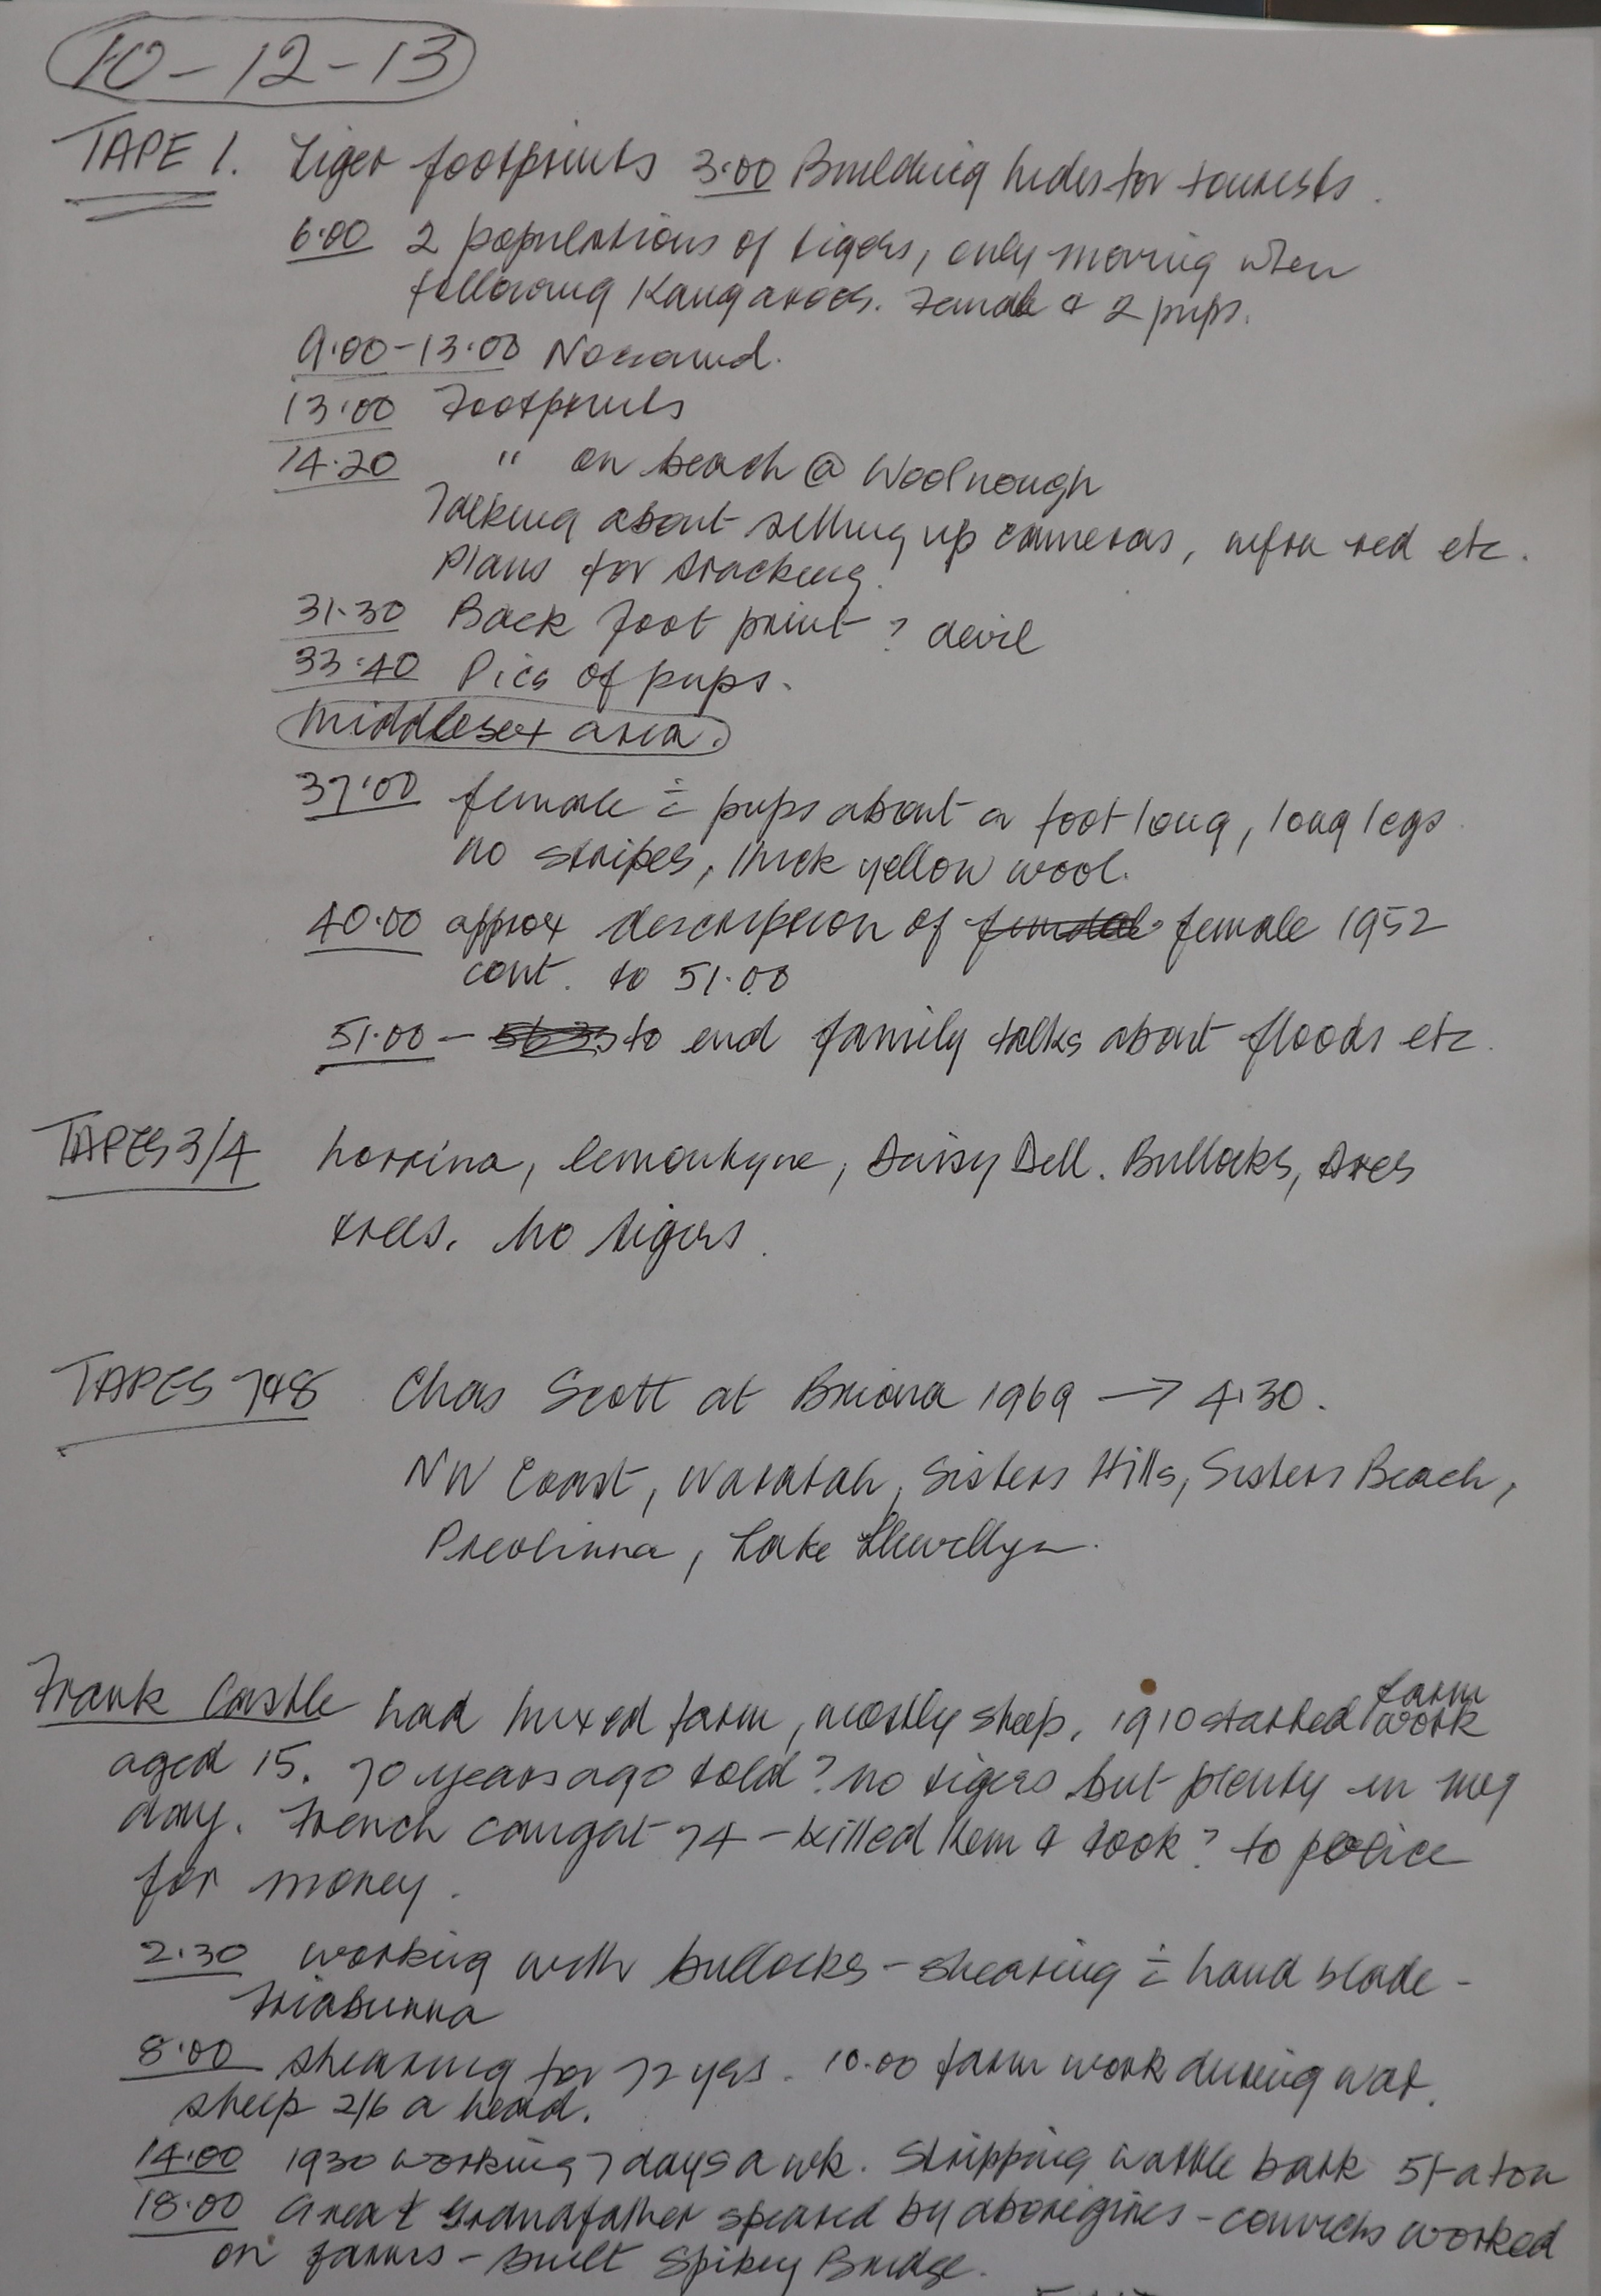 10-12-13
TAPE 1. Tiger footprints 3.00 Building hides for tourists.
6.00 2 populations of tigers, only moving when
following Kangaroos. Female & 2 pups.
9.00-13.00 No sound.
13.00 Footprints
14.20 " on beach @ Woolnough
Talking about setting up cameras, infra red etc.
Plans for tracking.
31.30 Back foot print ? devil
33.40 Pics of pups.
Middlesex area.
37.00 female c̄ pups about a foot long, long legs
no stripes, thick yellow wool.
40.00 approx description of female 1952
cont. to 51.00
51.00 - to end family talks about floods etc.
TAPES 3/4 Lorrina, Lemonthyme, Daisy Dell. Bullocks, Axes
trees. No tigers.
TAPES 7&8 Chas Scott at Briona 1969 → 4.30.
NW Coast, Waratah, Sisters Hills, Sisters Beach,
Preolinna, Lake Llewellyn.
Frank Castle had mixed farm, mostly sheep, 1910 started farm work
aged 15. 70 years ago told? no tigers but plenty in my
day. French caught 74 - killed them & took? to police
for money.
2.30 working with bullocks - shearing c̄ hand blade -
Triabunna
8.00 shearing for 72 yrs. 10.00 farm work during war.
sheep 2/6 a head.
14.00 1930 working 7 days a wk. Stripping wattle bark 5/- a ton
18.00 Great Grandfather speared by aborigines - convicts worked
on farms - built Spikey Bridge.